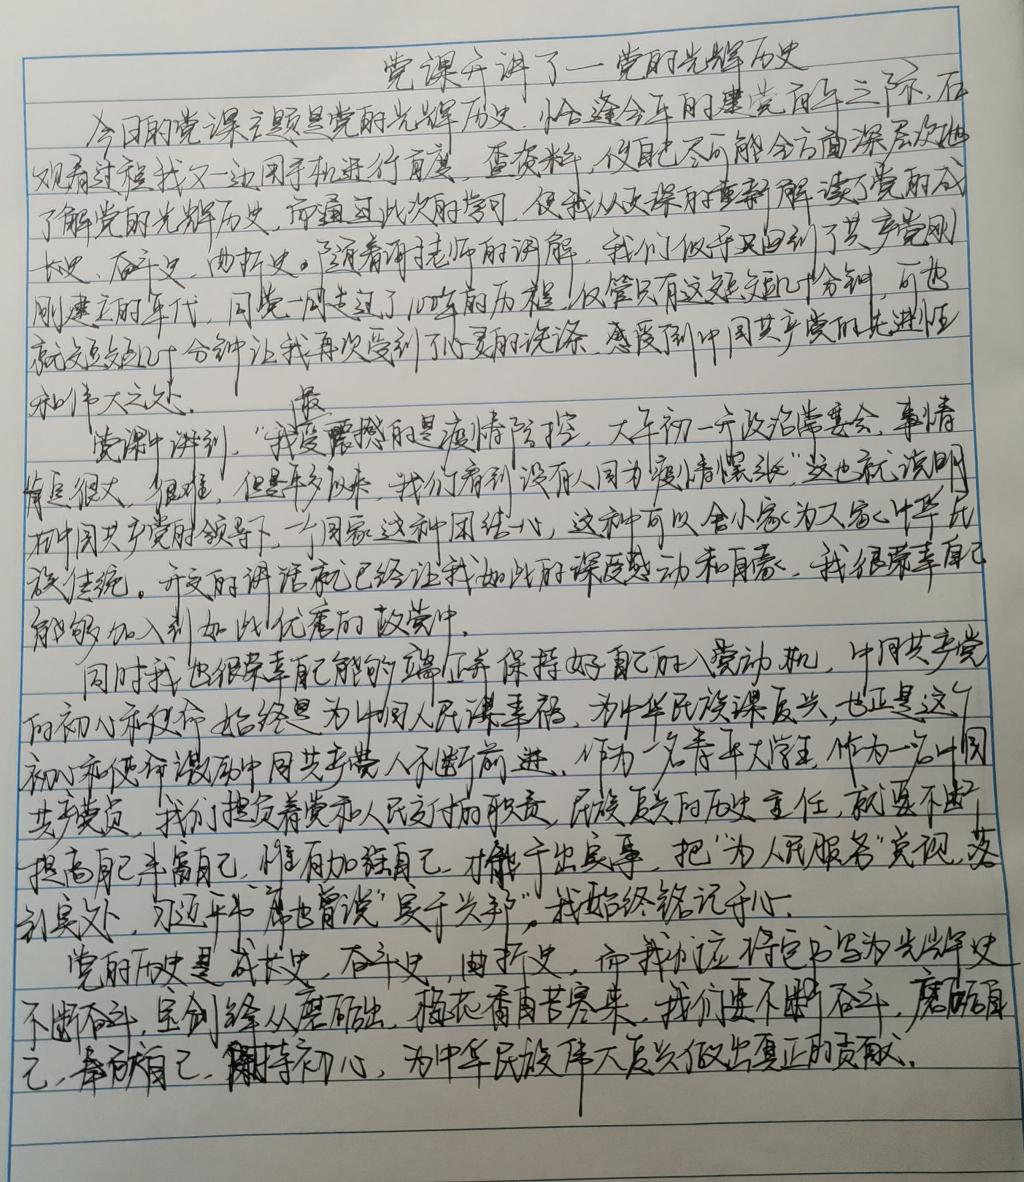 党课开讲了—党的光辉历史
今日的党课主题是党的光辉历史，恰逢今年的建党百年之际，在
观看过程我又一边用手机进行百度，查资料，使自己尽可能全方面深层次地
了解党的光辉历史，而通过此次的学习，使我从更深的重新解读了党的成
长史、奋斗史、曲折史。随着谢老师的讲解，我们似乎又回到了共产党刚
刚建立的年代，同党一同走过了100年的历程，仅管只有这短短几十分钟，可也
就短短几十分钟让我再次受到了心灵的洗涤，感受到中国共产党的先进性
和伟大之处。
党课中讲到，"我最受震撼的是疫情防控，大年初一开政治常委会，事情
肯定很大，很难，但是年多以来，我们看到没有人因为疫情慌张"这也就说明
在中国共产党的领导下，一个国家这种团结一心，这种可以舍小家为大家中华民
族传统。开文的讲话就已经让我如此的深受感动和自豪，我很荣幸自己
能够加入到如此优秀的政党中。
同时我也很荣幸自己能够端正并保持好自己的入党动机，中国共产党
的初心和使命始终是为中国人民谋幸福，为中华民族谋复兴，也正是这个
初心和使命激励中国共产党人不断前进，作为一名青年大学生，作为一名中国
共产党员，我们担负着党和人民交付的职责，民族复兴的历史主任，就要不断
提高自己，丰富自己，惟有加强自己，才能干出实事，把"为人民服务"实现，落
到实处，习近平书席也曾说"实干兴邦"。我始终铭记于心。
党的历史是成长史，奋斗史，曲折史，而我们应将它书写为光辉史
不断奋斗，宝剑锋从磨砺出，梅花香自苦寒来，我们要不断奋斗，磨砺自
己，奉献自己，保持初心，为中华民族伟大复兴做出真正的贡献。